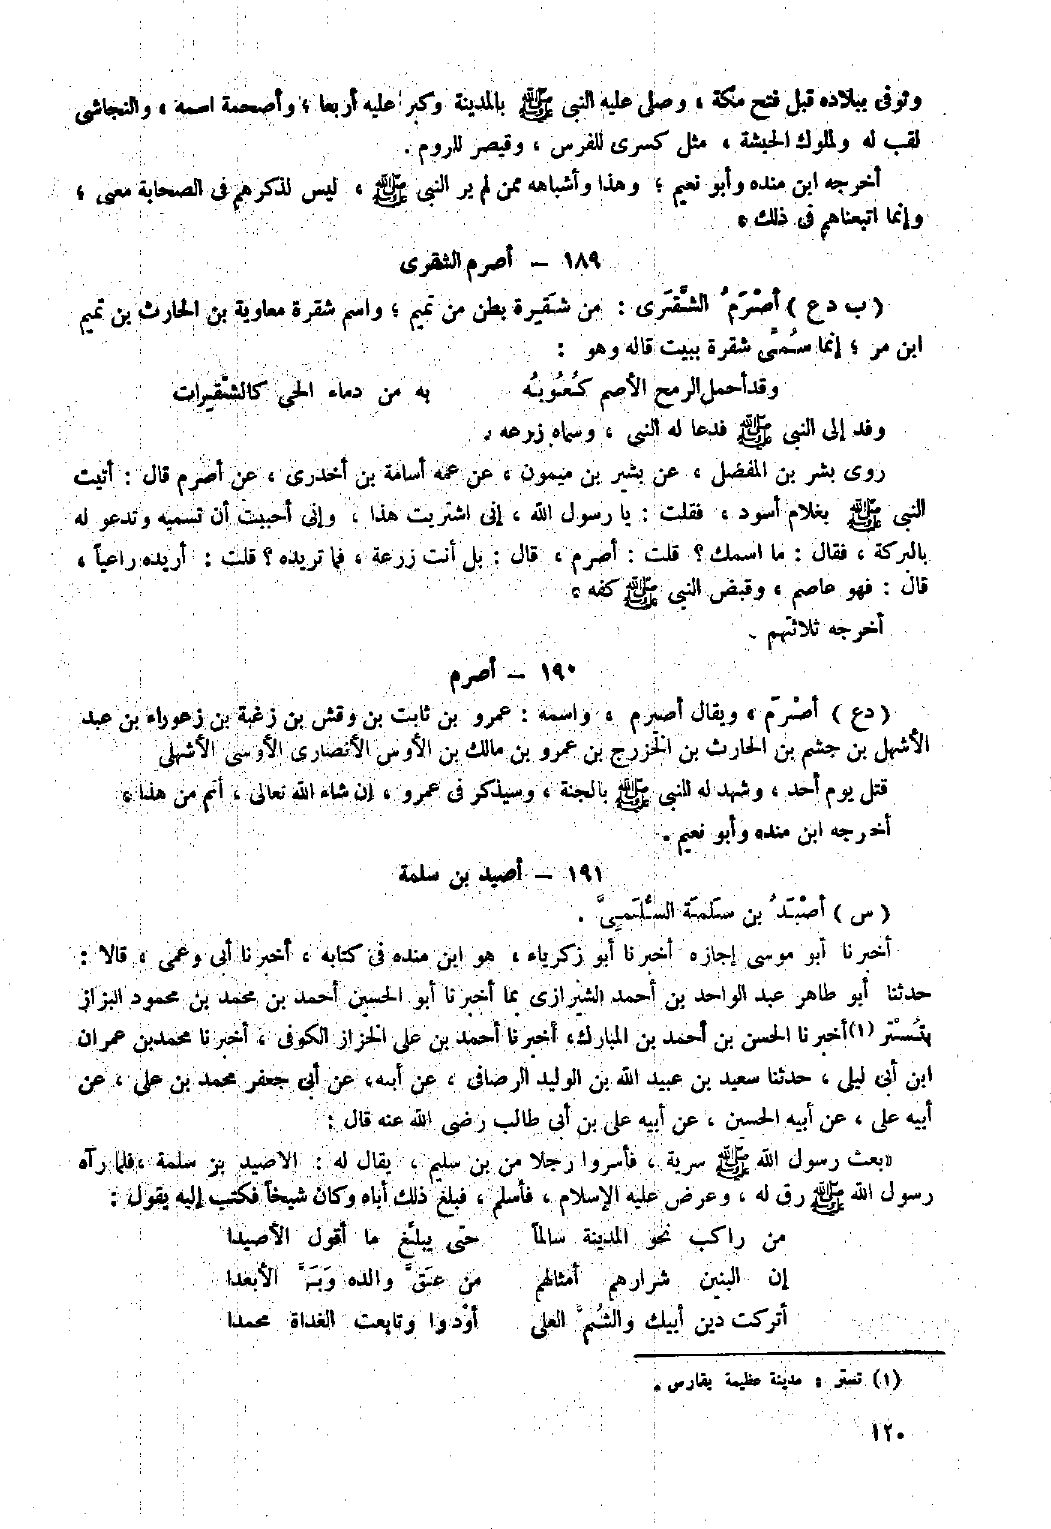 وتوفى ببلاده قبل فتح مكة ، وصلى عليه النبي ﷺ بالمدينة وكبر عليه أربعا ؛ وأصحمة اسمه ، والنجاشى
لقب له ولملوك الحبشة ، مثل كسرى للفرس ، وقيصر للروم .
أخرجه ابن منده وأبو نعيم ؛ وهذا وأشباهه ممن لم ير النبي ﷺ ، ليس لذكرهم فى الصحابة معنى ؛
وإنما اتبعناهم فى ذلك .
١٨٩ – أصرم الشقرى
( ب د ع ) أصْرَمُ الشَّقَرَى : من شَقِيرة بطن من تميم ؛ واسم شقرة معاوية بن الحارث بن تميم
ابن مر ؛ إنما سُمِّى شقرة ببيت قاله وهو :
وقد أحمل الرمح الأصم كُعُوبُه به من دماء الحى كالشَّقِيرات
وفد إلى النبي ﷺ فدعا له النبي ، وسماه زرعه .
روى بشر بن المفضل ، عن بشير بن ميمون ، عن عمه أسامة بن أخدرى ، عن أصرم قال : أتيت
النبي ﷺ بغلام أسود ، فقلت : يا رسول الله ، إنى اشتريت هذا ، وإنى أحببت أن تسميه وتدعو له
بالبركة ، فقال : ما اسمك ؟ قلت : أصرم ، قال : بل أنت زرعة ، فما تريده ؟ قلت : أريده راعياً ،
قال : فهو عاصم ، وقبض النبي ﷺ كفه .
أخرجه ثلاثتهم .
١٩٠ – أصرم
( د ع ) أصْرَم ، ويقال أصيرم ، واسمه : عمرو بن ثابت بن وقش بن زغبة بن زعوراء بن عبد
الأشهل بن جشم بن الحارث بن الخزرج بن عمرو بن مالك بن الأوس الأنصارى الأوسى الأشهلى
قتل يوم أحد ، وشهد له النبي ﷺ بالجنة ، وسيذكر فى عمرو ، إن شاء الله تعالى ، أتم من هذا .
أخرجه ابن منده وأبو نعيم .
١٩١ – أصيد بن سلمة
( س ) أصْيَدُ بن سَلَمَة السُّلَمىّ .
أخبرنا أبو موسى إجازه أخبرنا أبو زكرياء ، هو ابن منده فى كتابه ، أخبرنا أبى وعمى ، قالا :
حدثنا أبو طاهر عبد الواحد بن أحمد الشيرازى بما أخبرنا أبو الحسين أحمد بن محمد بن محمود البزاز
بتُسْتَر (١) أخبرنا الحسن بن أحمد بن المبارك، أخبرنا أحمد بن على الخزاز الكوفى ، أخبرنا محمد بن عمران
ابن أبى ليلى ، حدثنا سعيد بن عبيد الله بن الوليد الرصافى ، عن أبيه، عن أبى جعفر محمد بن على ، عن
أبيه على ، عن أبيه الحسين ، عن أبيه على بن أبى طالب رضى الله عنه قال :
«بعث رسول الله ﷺ سرية ، فأسروا رجلا من بن سليم ، يقال له : الاصيد بن سلمة ،فلما رآه
رسول الله ﷺ رق له ، وعرض عليه الإسلام ، فأسلم ، فبلغ ذلك أباه وكان شيخاً فكتب إليه يقول :
من راكب نحو المدينة سالماً حتى يبلِّغ ما أقول الأصيدا
إن البنين شرارهم أمثالهم من عَقَّ والده وَبَرَّ الأبعدا
أتركت دين أبيك والشُّمَّ العلى أوْدوا وتابعت الغداة محمدا
(١) تستر : مدينة عظيمة بفارس .
١٢٠